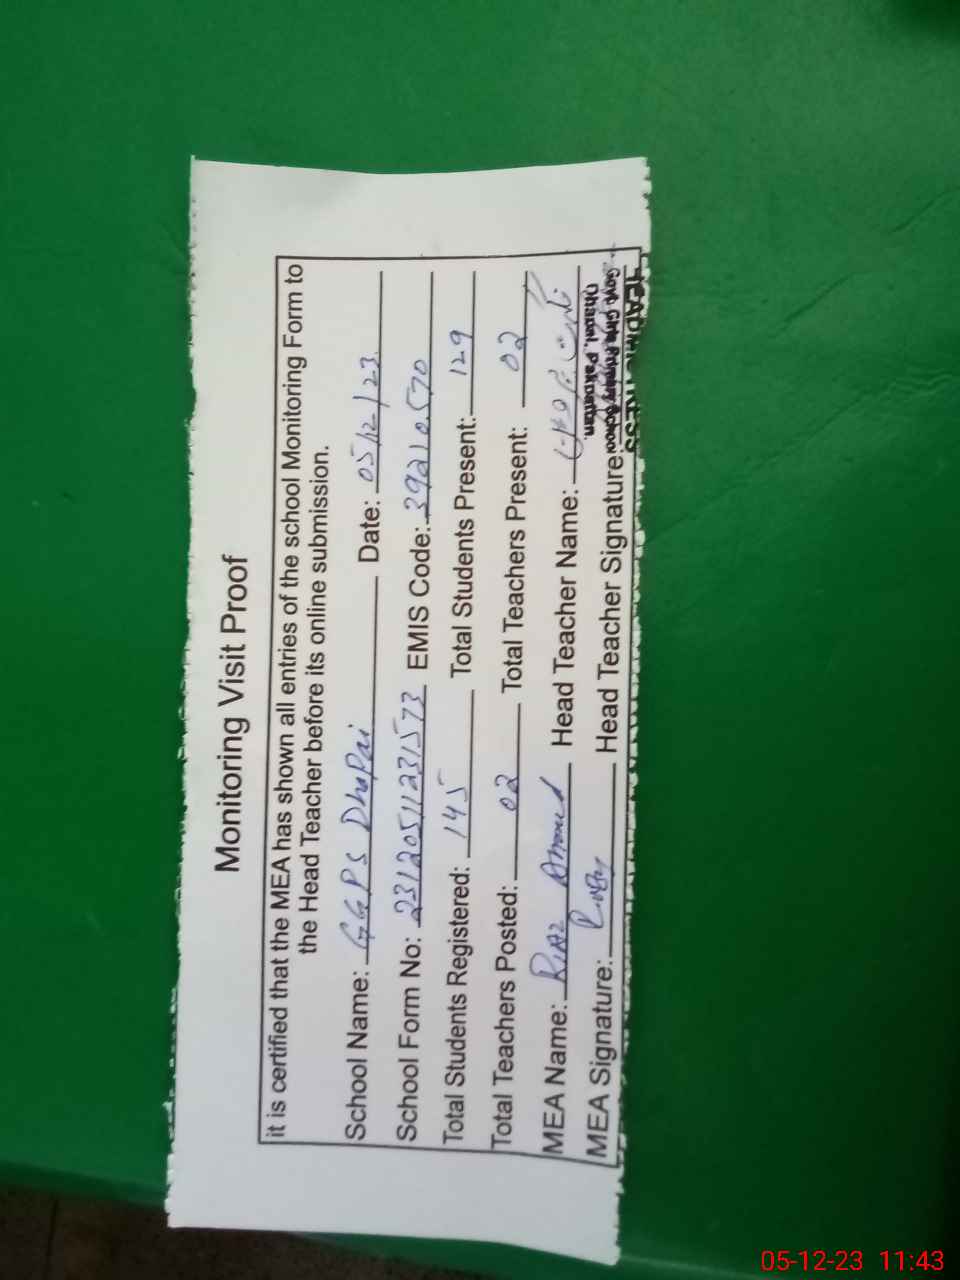 Monitoring Visit Proof
it is certified that the MEA has shown all entries of the school Monitoring Form to
the Head Teacher before its online submission.
School Name: GGPS DhaPai Date: 05/12/23
School Form No: 231205112315 73 EMIS Code: 39210570
Total Students Registered: 145 Total Students Present: 129
Total Teachers Posted: 02 Total Teachers Present: 02
MEA Name: Riaz Ahmed Head Teacher Name:
MEA Signature: Head Teacher Signature:
HEADMISTRESS
Govt. Girls Primary School
Dhapai, Pakpattan.
05-12-23 11:43